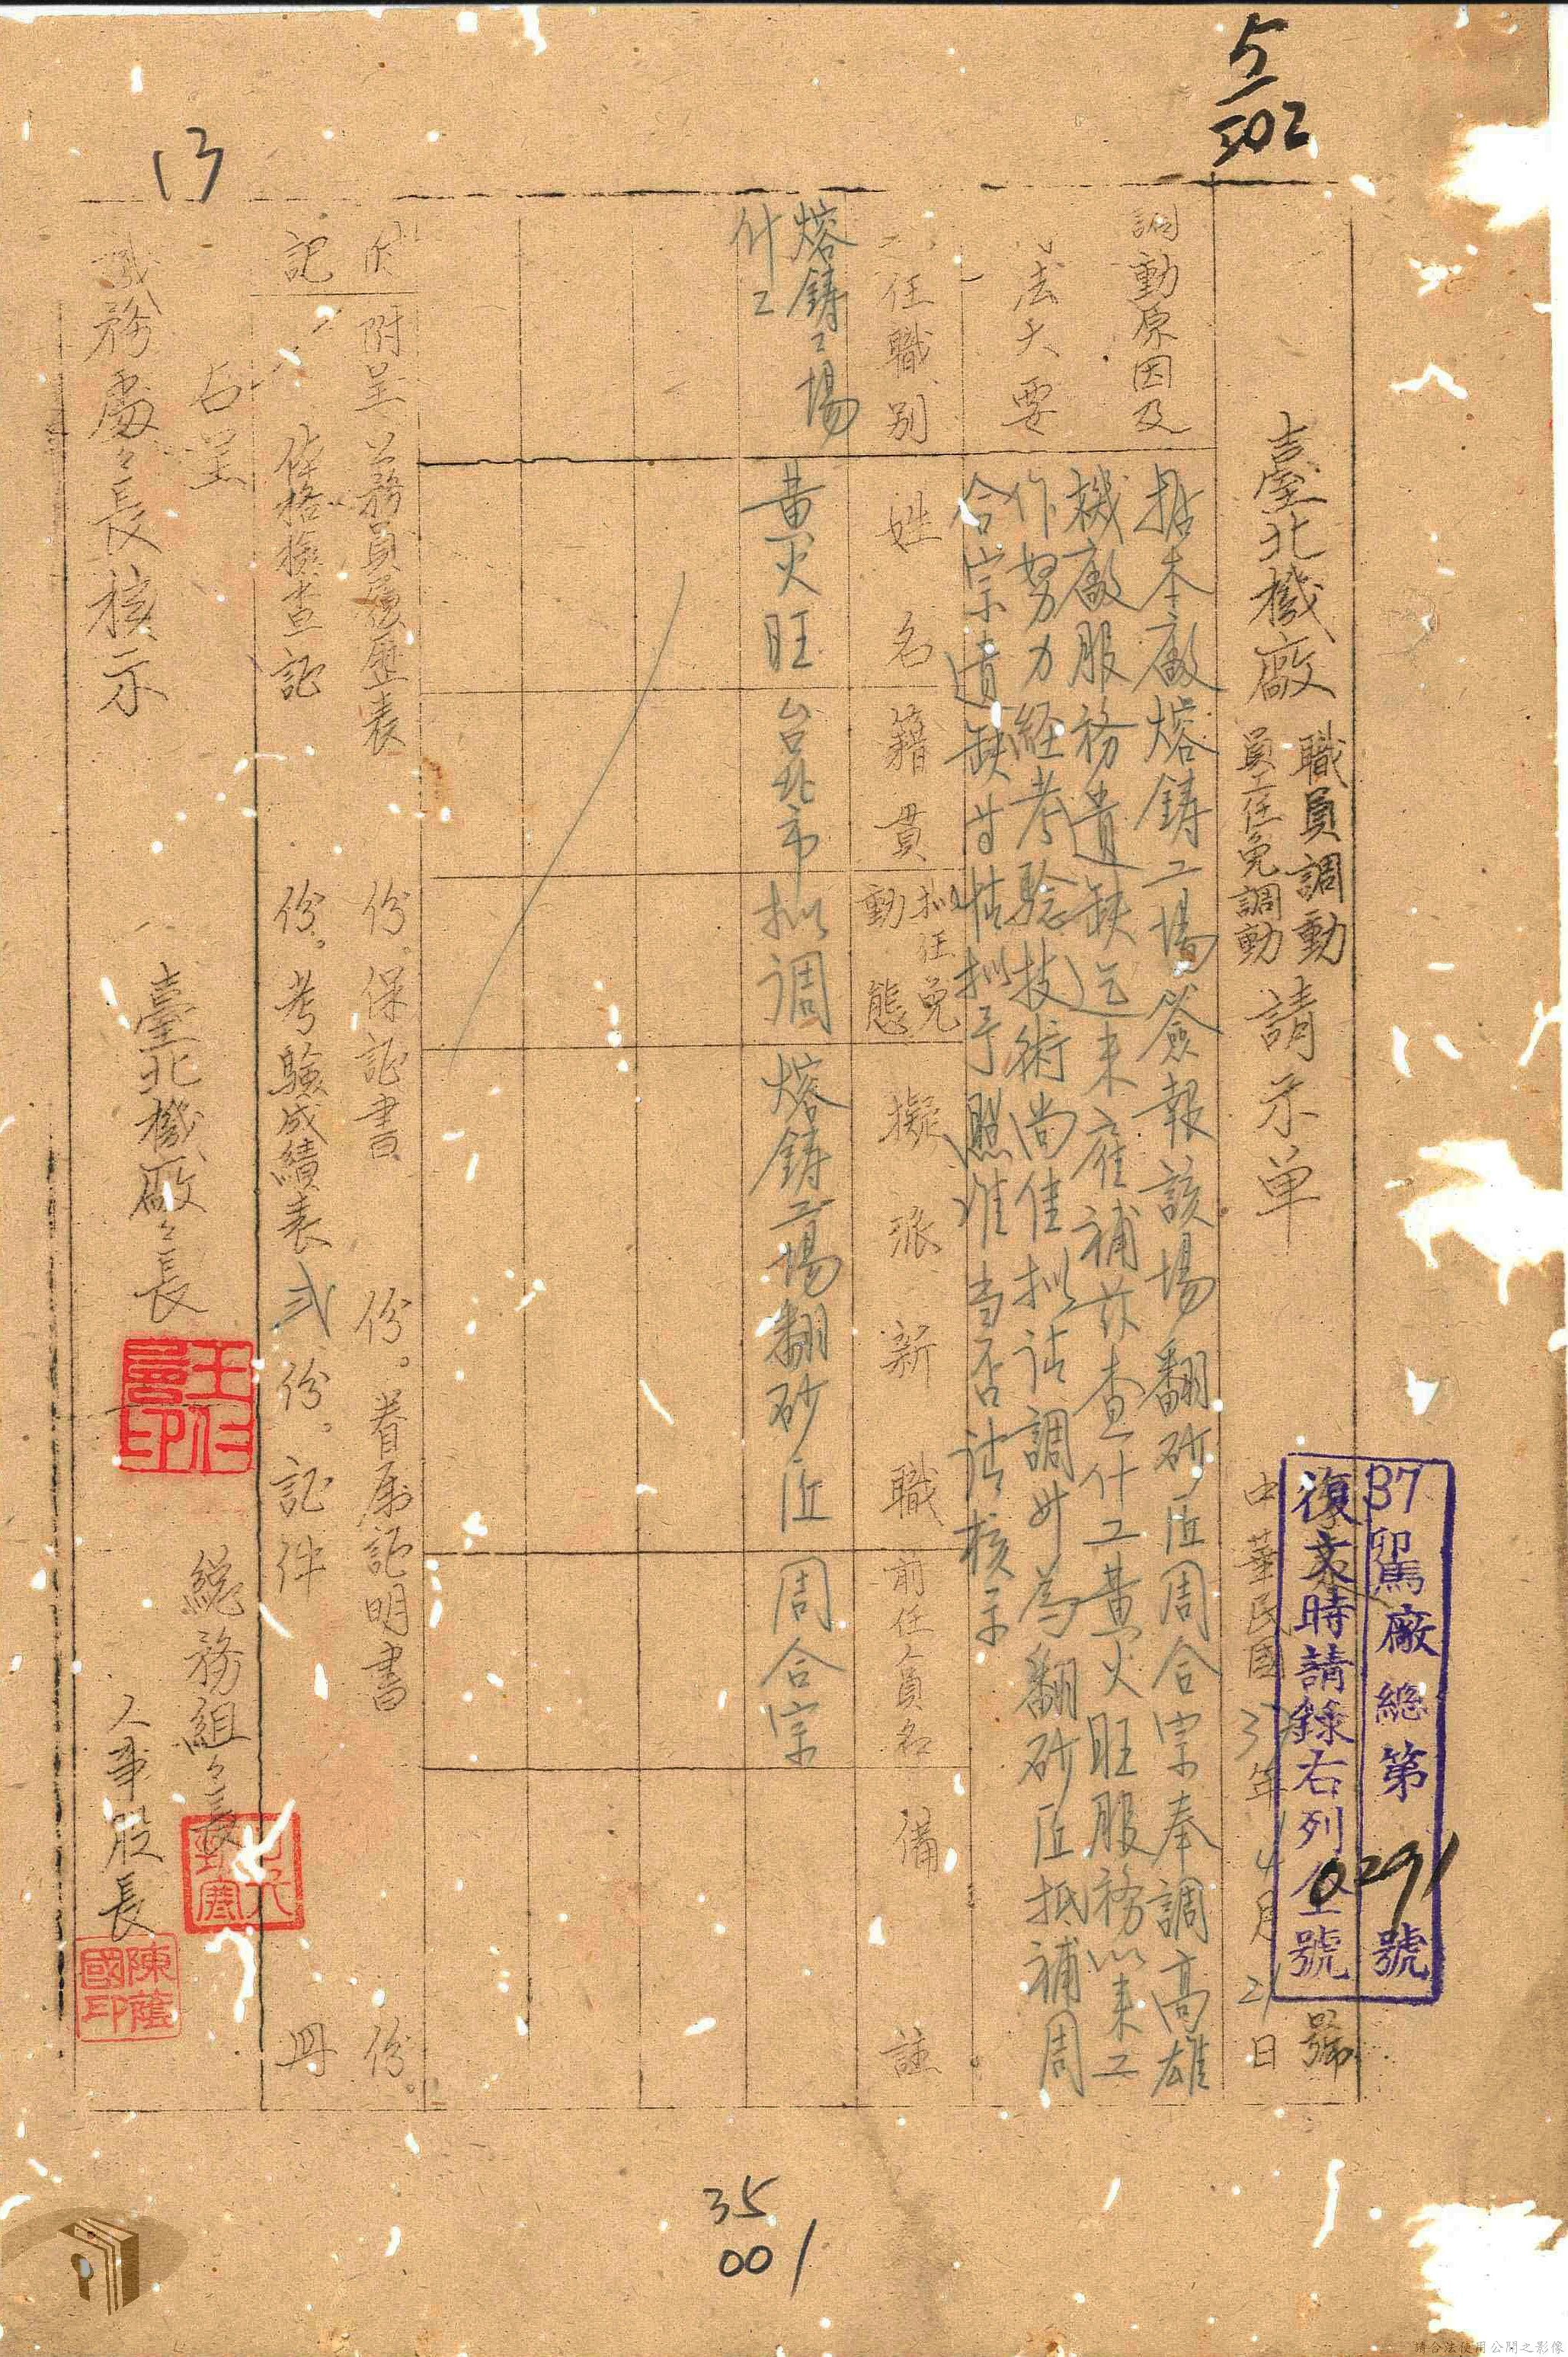 5
302
13
37駕廠總第0291號
復文時請錄右列全號
號
臺北機廠
職員調動
員工任免調動
請示單
中華民國37年4月21日
調動原因及
法大要
据本廠熔鑄工場簽報該場翻砂匠周合宗奉調高雄
機廠服務遺缺迄未雇補茲查什工黃火旺服務以来工
作努力経考驗技術尚佳拟请調升為翻砂匠抵補周
合宗遺缺
拟予照准当否请核示
任職別
姓名
籍貫
拟任免
動態
擬派新職
前任員名
備註
熔鑄工場
什工
黃火旺
台北市
拟调
熔鑄工場翻砂匠
周合宗
附
記
附呈
務員履歷表 份。保証書 份。眷屬証明書 份。
体格檢查証 份。考驗成績表弍份。証件 冊
右呈
務處々長核示
臺北機廠々長
總務組々長
人事股長
陳蔭國印
35
001
請合法使用公開之影像